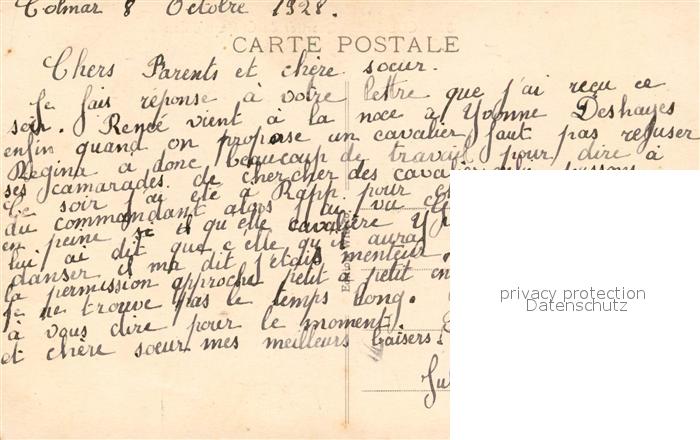 Colmar 8 Octobre 1928.
CARTE POSTALE
Chers Parents et chère soeur.
Je fais réponse à votre lettre que j'ai reçu ce
soir. Renée vient à la noce à Yvonne Deshayes
enfin quand on propose un cavalier faut pas refuser
Regina a donc beaucoup de travail pour dire à
ses camarades de chercher des cavaliers
Ce soir j'ai été à Rapp. pour
du commandant alors tu vu
en peine se il qu'elle cavalière
lui ai dit que c'élle qu'il aura
danser il ma dit j'étais menteur.
la permission approche petit à petit en
je ne trouve pas le temps long.
à vous dire pour le moment.
et chère soeur mes meilleurs baisers
privacy protection
Datenschutz